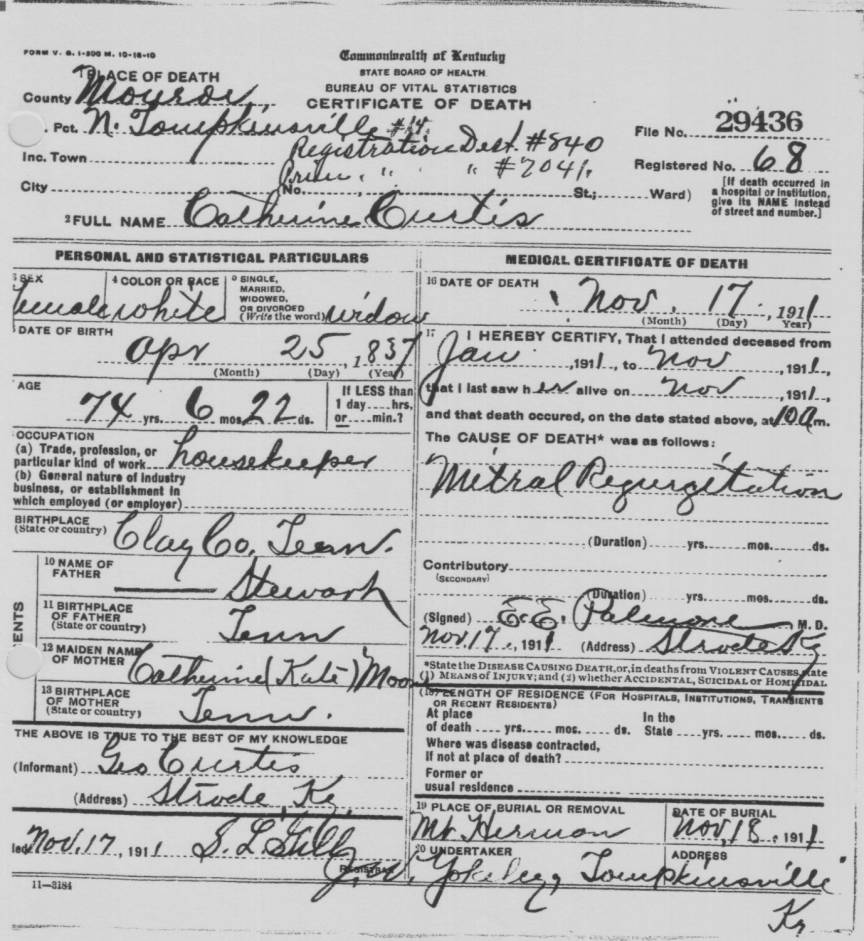 FORM V. S. 1-500 M. 10-16-10
Commonwealth of Kentucky
STATE BOARD OF HEALTH
BUREAU OF VITAL STATISTICS
CERTIFICATE OF DEATH
1 PLACE OF DEATH
County Monroe
. Pct. N. Tompkinsville #14
Registration Dist. #840
Inc. Town
Prim. " " #7041
City No. St.; Ward)
File No. 29436
Registered No. 68
[If death occurred in
a hospital or institution,
give its NAME instead
of street and number.]
2 FULL NAME Catherine Curtis
PERSONAL AND STATISTICAL PARTICULARS
SEX female
4 COLOR OR RACE white
5 SINGLE,
MARRIED,
WIDOWED,
OR DIVORCED
(Write the word) widow
DATE OF BIRTH
Apr 25, 1837
(Month) (Day) (Year)
AGE
74 yrs. 6 mos. 22 ds.
If LESS than
1 day.....hrs.
or.....min.?
OCCUPATION
(a) Trade, profession, or
particular kind of work housekeeper
(b) General nature of industry
business, or establishment in
which employed (or employer)
BIRTHPLACE
(State or country) Clay Co, Tenn.
ENTS
10 NAME OF
FATHER Stewart
11 BIRTHPLACE
OF FATHER
(State or country) Tenn
12 MAIDEN NAME
OF MOTHER Catherine (Kate) Moore
13 BIRTHPLACE
OF MOTHER
(State or country) Tenn.
THE ABOVE IS TRUE TO THE BEST OF MY KNOWLEDGE
(Informant) Geo Curtis
(Address) Strode, Ky.
led Nov. 17, 1911 S. L.
REGISTRAR
11-3184
MEDICAL CERTIFICATE OF DEATH
16 DATE OF DEATH
Nov. 17, 1911
(Month) (Day) Year)
17 I HEREBY CERTIFY, That I attended deceased from
Jan, 1911, to Nov, 1911,
that I last saw her alive on Nov, 1911,
and that death occured, on the date stated above, at 10 a m.
The CAUSE OF DEATH* was as follows:
Mitral Regurgitation
(Duration) yrs. mos. ds.
Contributory
(SECONDARY)
(Duration) yrs. mos. ds.
(Signed) E. E. Palmore M. D.
Nov 17, 1911 (Address) Strode Ky
*State the DISEASE CAUSING DEATH, or, in deaths from VIOLENT CAUSES, state
(1) MEANS OF INJURY; and (2) whether ACCIDENTAL, SUICIDAL OR HOMICIDAL
(18) LENGTH OF RESIDENCE (FOR HOSPITALS, INSTITUTIONS, TRANSIENTS
OR RECENT RESIDENTS)
At place
of death yrs. mos. ds.
In the
State yrs. mos. ds.
Where was disease contracted,
If not at place of death?
Former or
usual residence
19 PLACE OF BURIAL OR REMOVAL
Mt. Herman
DATE OF BURIAL
Nov, 18, 1911
20 UNDERTAKER
J. W. Yokeley,
ADDRESS
Tompkinsville
Ky